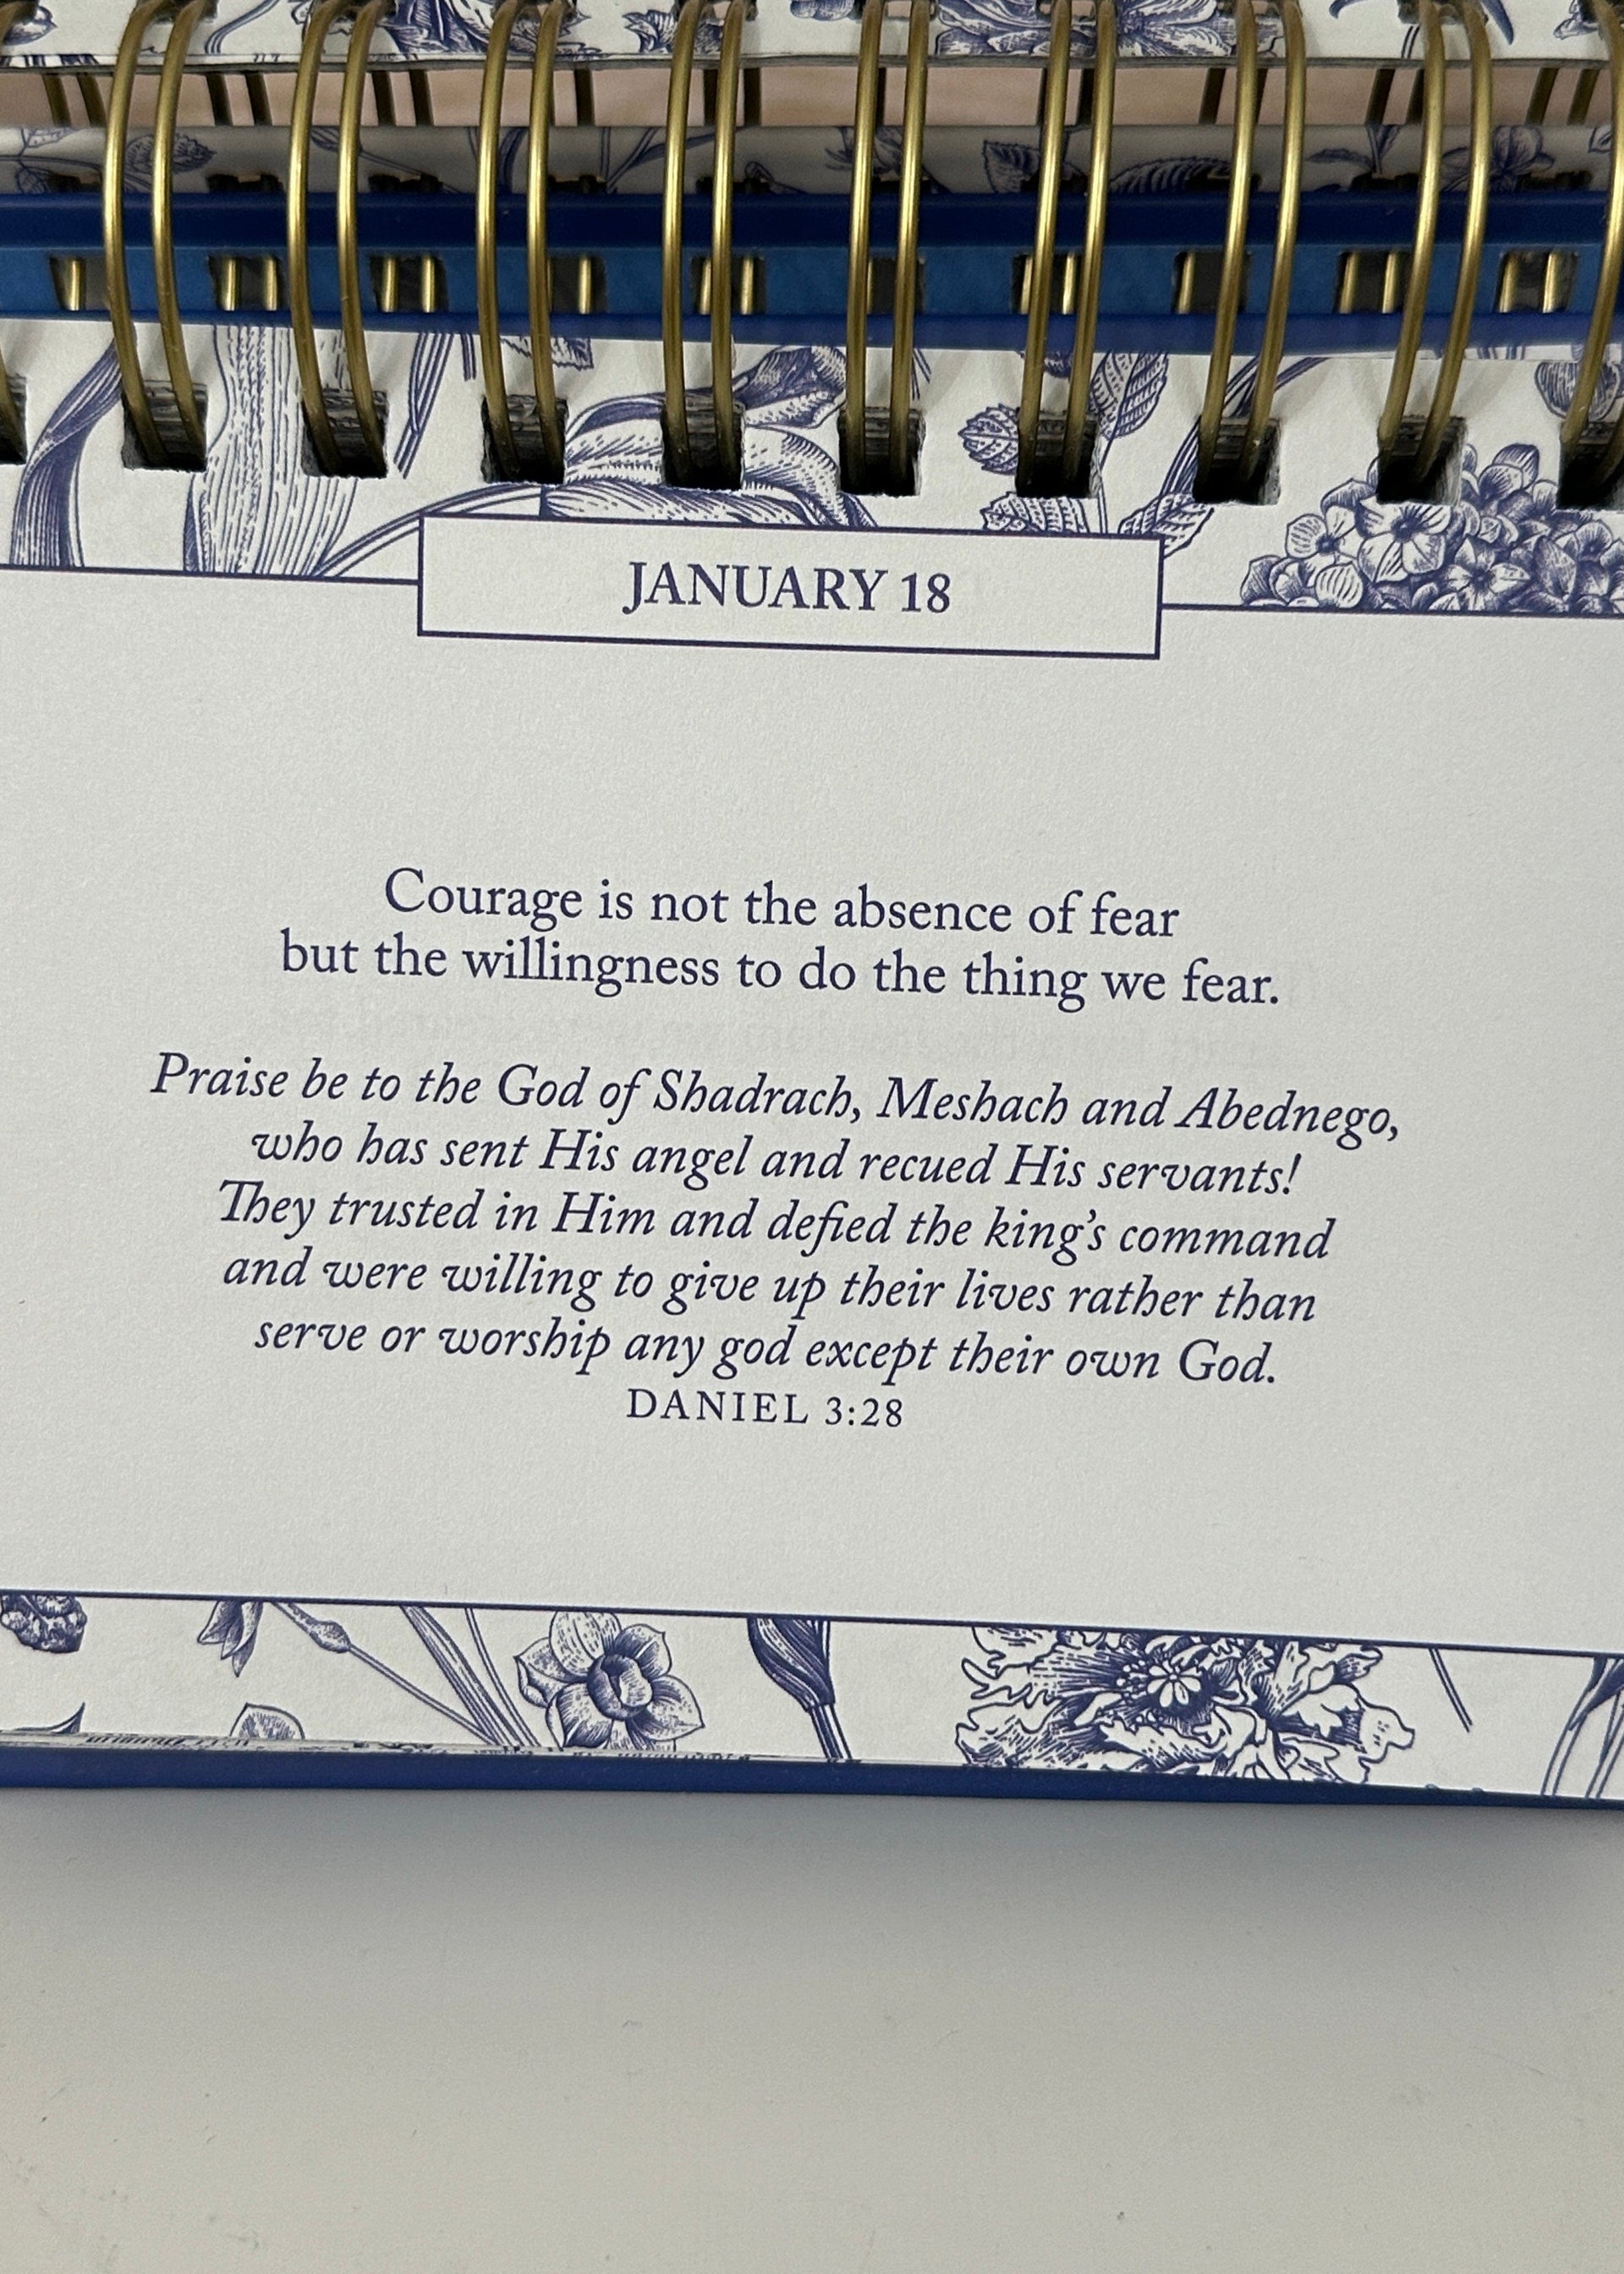 JANUARY 18
Courage is not the absence of fear
but the willingness to do the thing we fear.
Praise be to the God of Shadrach, Meshach and Abednego,
who has sent His angel and recued His servants!
They trusted in Him and defied the king’s command
and were willing to give up their lives rather than
serve or worship any god except their own God.
DANIEL 3:28